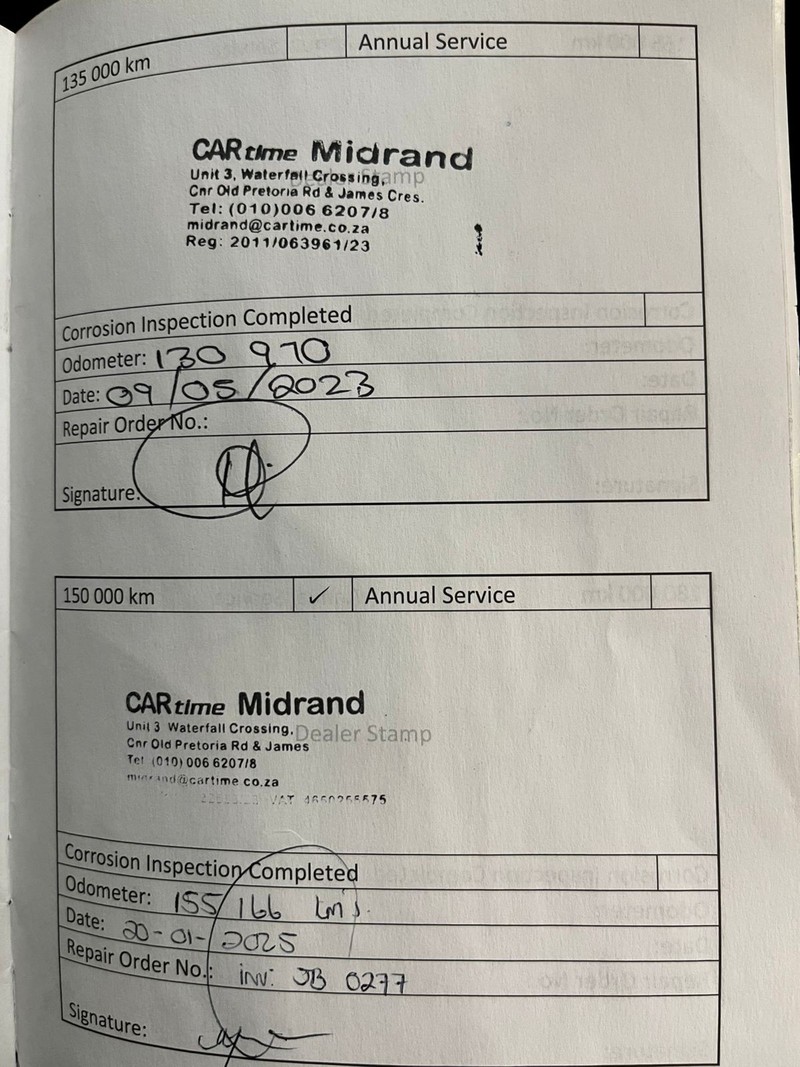 135 000 km Annual Service
CARtime Midrand
Unit 3, Waterfall Crossing,
Dealer Stamp
Cnr Old Pretoria Rd & James Cres.
Tel: (010)006 6207/8
midrand@cartime.co.za
Reg: 2011/063961/23
Corrosion Inspection Completed
Odometer: 130 970
Date: 09/05/2023
Repair Order No.:
Signature:
150 000 km ✓ Annual Service
CARtime Midrand
Unit 3 Waterfall Crossing,
Dealer Stamp
Cnr Old Pretoria Rd & James
Tel (010) 006 6207/8
midrand@cartime.co.za
VAT
Corrosion Inspection Completed
Odometer: 155 166 km's.
Date: 20-01-2025
Repair Order No.: inv: JB 0277
Signature: